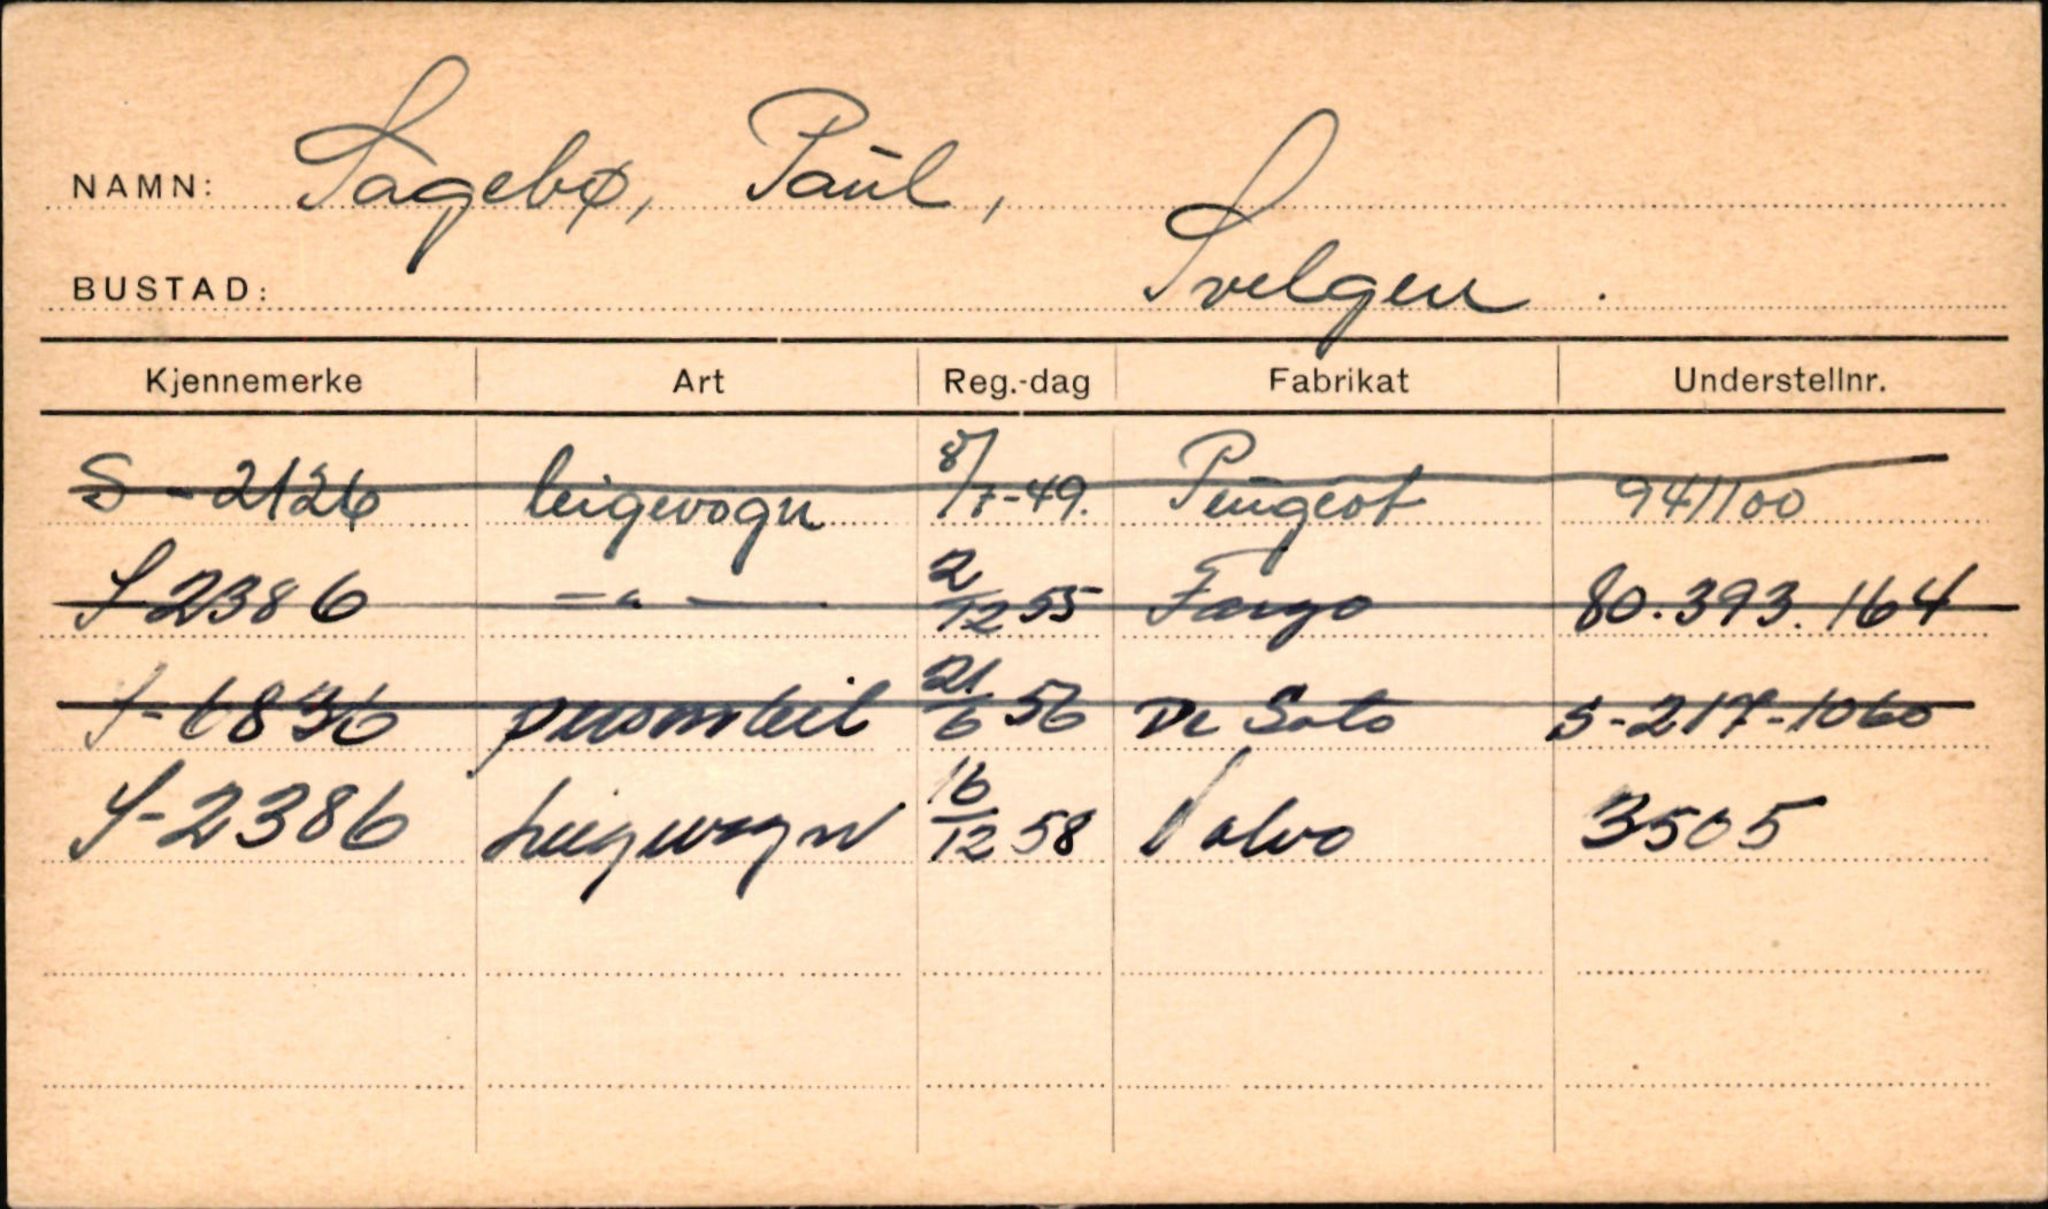 NAMN: Sagebø, Paul,
BUSTAD: Svelgen.
Kjennemerke Art Reg.-dag Fabrikat Understellnr.
S-2126 leigevogn 8/7-49. Peugeot 941100
S-2386 -"- 2/12 55 Fargo 80.393.164
S-6836 personbil 21/6 56 De Soto S-217-1060
S-2386 Leigevogn 16/12 58 Volvo 3505